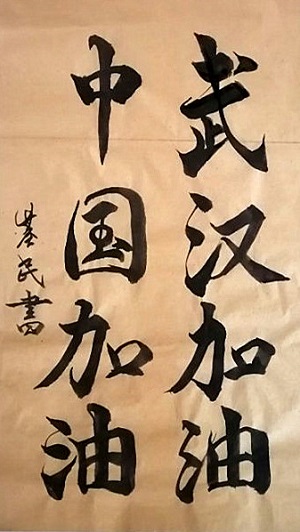 武汉加油
中国加油
基民書